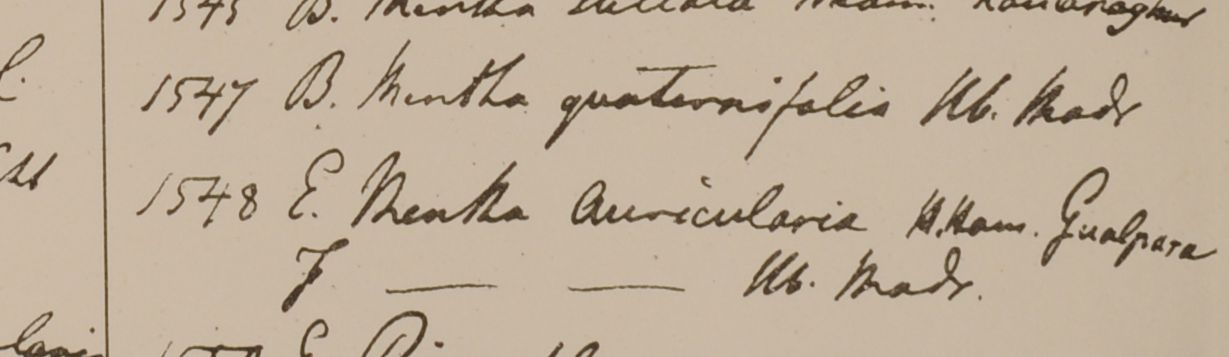 1545 B. Mentha Ham.
1547 B. Mentha quaternifolia Hb. Madr
1548 E. Mentha Auricularia H. Ham. Gualpara
F — — Hb. Madr.